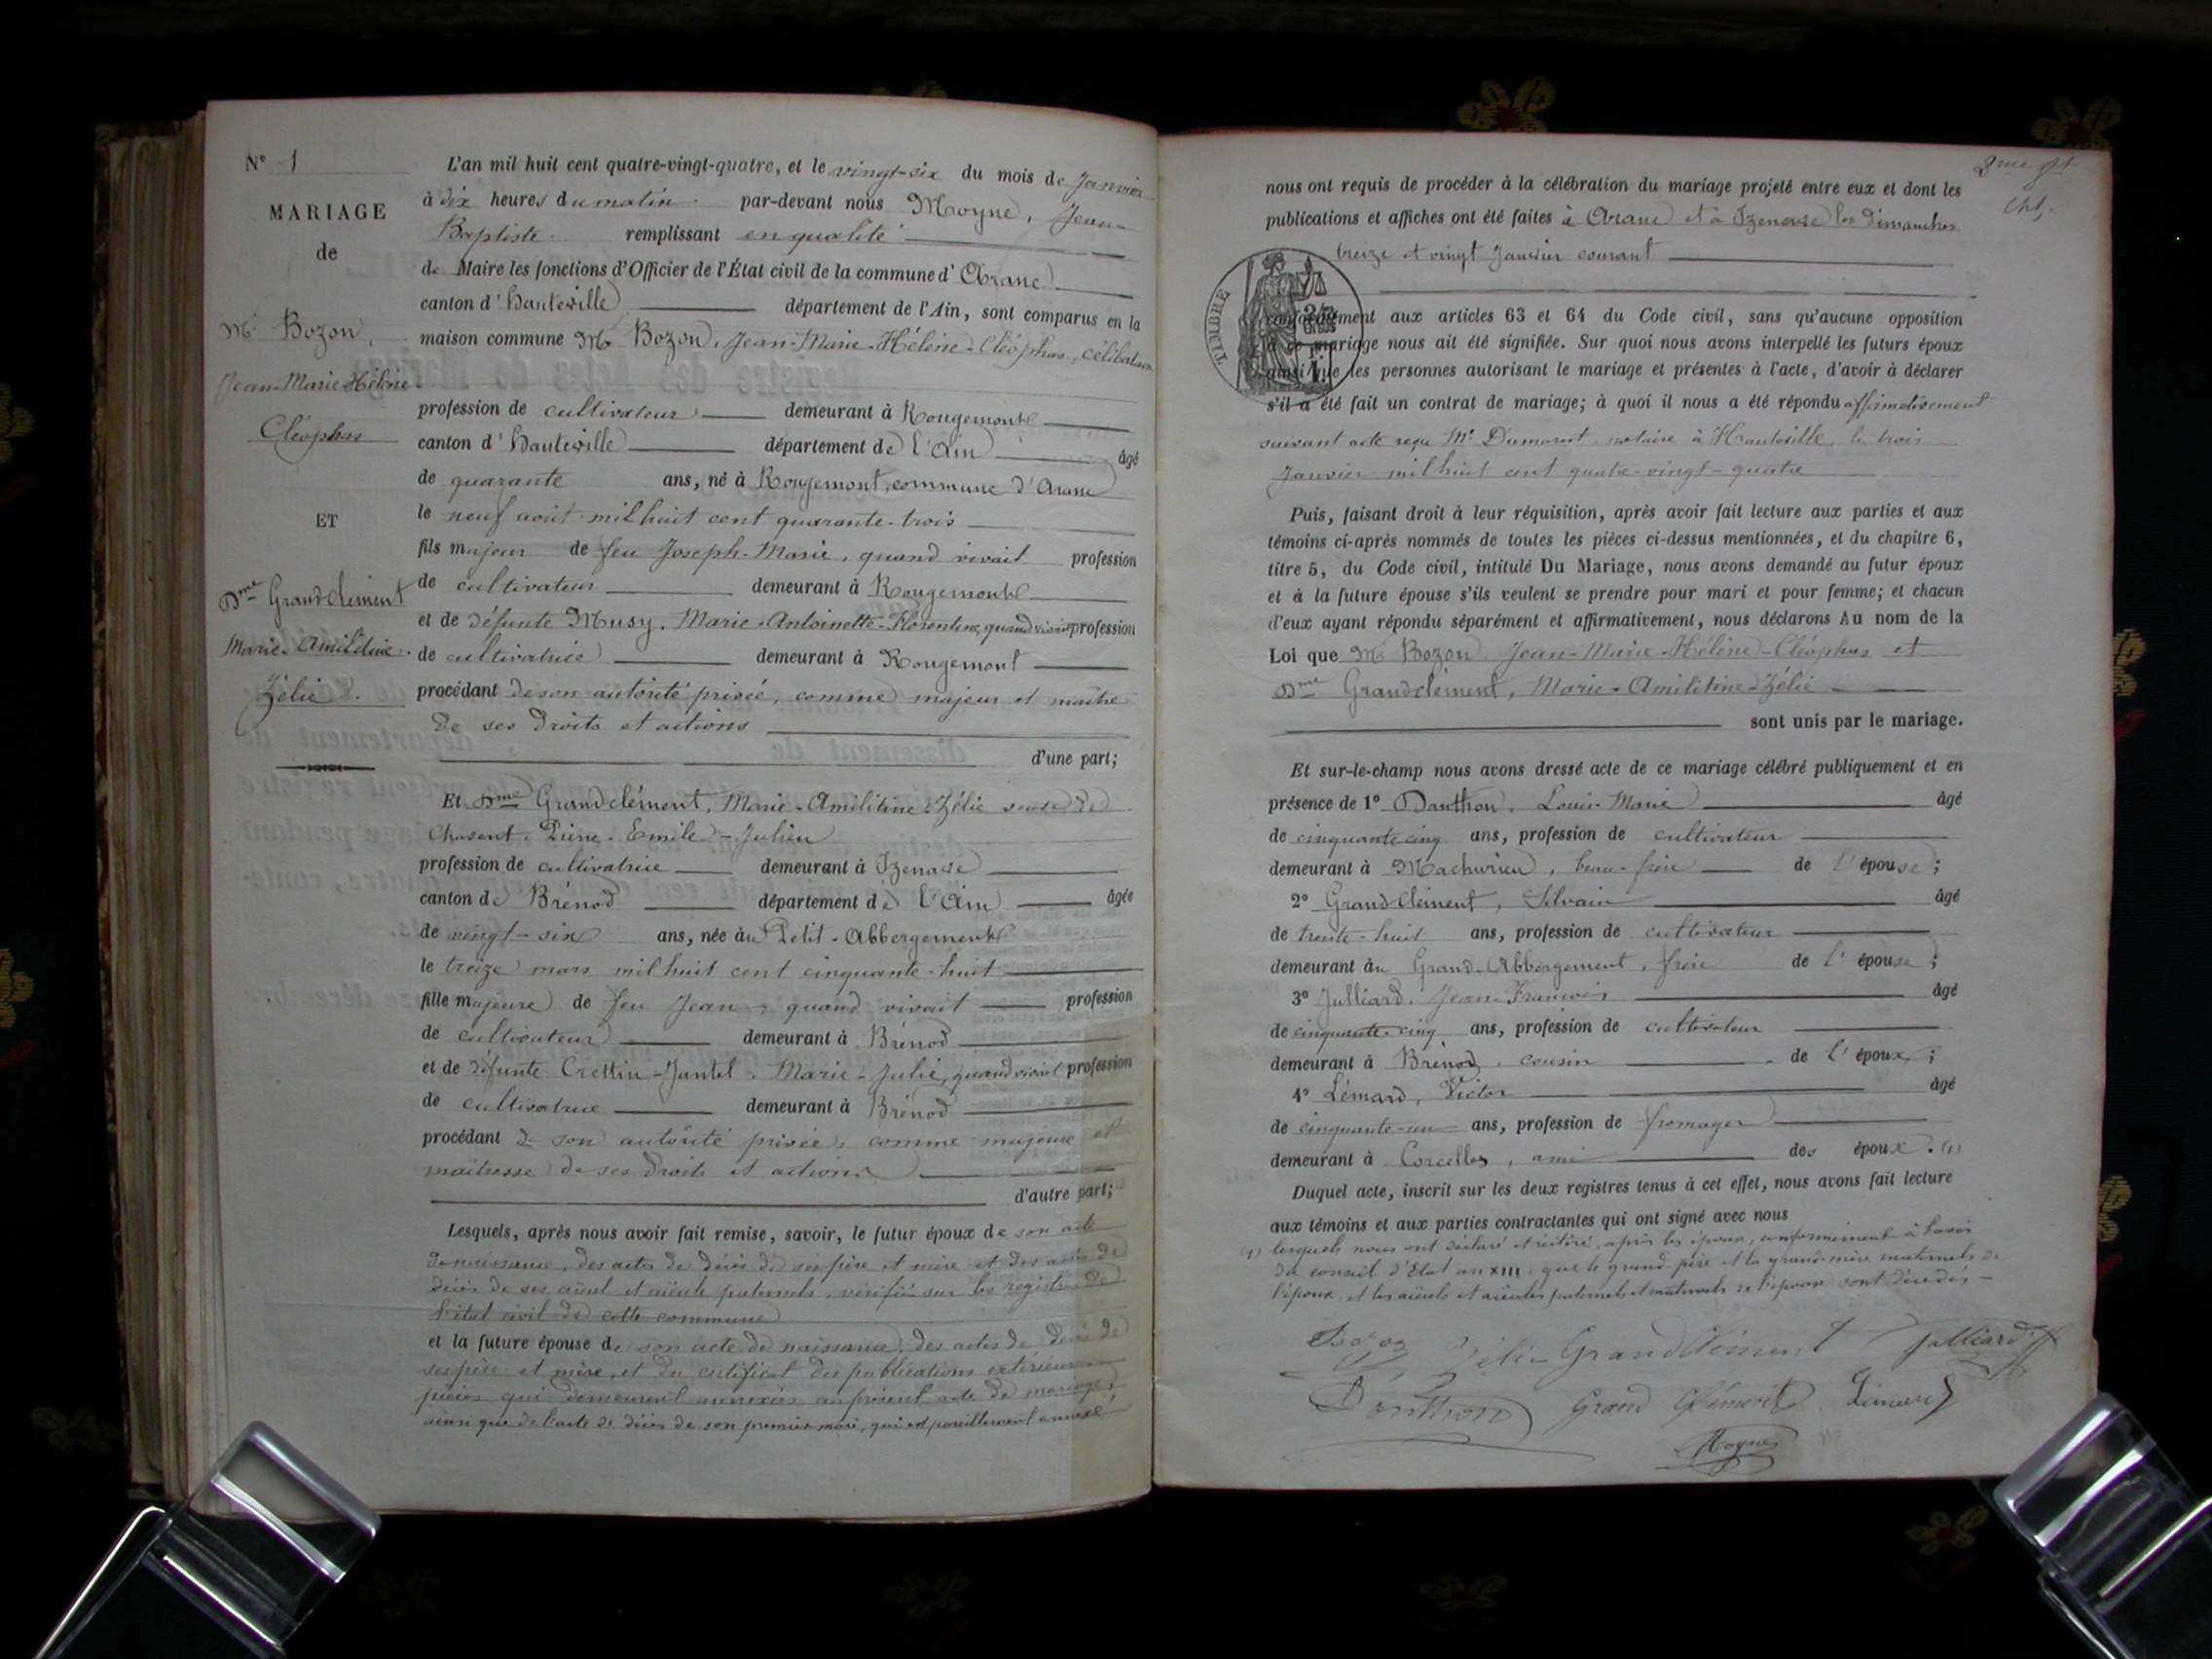 N° 1
MARIAGE
de
Mr Bozon,
Jean-Marie-Hélène-
Cléophas
ET
Dme Grandclément
Marie-Amilitine-
Zélie.
L'an mil huit cent quatre-vingt-quatre, et le vingt-six du mois de Janvier
à dix heures du matin par-devant nous Moyne, Jean-
Baptiste remplissant en qualité
de Maire les fonctions d'Officier de l'État civil de la commune d'Aranc
canton d'hauteville département de l'Ain, sont comparus en la
maison commune Mr Bozon, Jean-Marie-Hélène-Cléophas, célibataire
profession de cultivateur demeurant à Rougemont
canton d'hauteville département de l'Ain âgé
de quarante ans, né à Rougemont, commune d'Aranc
le neuf août mil huit cent quarante-trois
fils majeur de feu Joseph-Marie, quand vivait profession
de cultivateur demeurant à Rougemont
et de défunte Musy, Marie-Antoinette-Florentine, quand vivait profession
de cultivatrice demeurant à Rougemont
procédant de son autorité privée, comme majeur et maître
de ses droits et actions
d'une part;
Et Dme Grandclément, Marie-Amilitine-Zélie veuve de
Chavent, Pierre-Emile-Julien
profession de cultivatrice demeurant à Izenave
canton de Brénod département de l'Ain âgée
de vingt-six ans, née au Petit-Abbergement
le treize mars mil huit cent cinquante-huit
fille majeure de feu Jean, quand vivait profession
de cultivateur demeurant à Brénod
et de défunte Crettin-Jantet, Marie-Julie, quand vivait profession
de cultivatrice demeurant à Brénod
procédant de son autorité privée, comme majeure et
maîtresse de ses droits et actions
d'autre part;
Lesquels, après nous avoir fait remise, savoir, le futur époux de son acte
de naissance, des actes de décès de ses père et mère et des actes de
décès de ses aïeul et aïeule paternels, vérifiés sur les registres de
l'état civil de cette commune
et la future épouse de son acte de naissance, des actes de décès de
ses père et mère, et du certificat des publications extérieures
pièces qui demeurent annexées au présent acte de mariage,
ainsi que de l'acte de décès de son premier mari, qui est pareillement annexé
2me
nous ont requis de procéder à la célébration du mariage projeté entre eux et dont les
publications et affiches ont été faites à Aranc et à Izenave les dimanches
treize et vingt Janvier courant
TIMBRE
conformément aux articles 63 et 64 du Code civil, sans qu'aucune opposition
à ce mariage nous ait été signifiée. Sur quoi nous avons interpellé les futurs époux
ainsi que les personnes autorisant le mariage et présentes à l'acte, d'avoir à déclarer
s'il a été fait un contrat de mariage; à quoi il nous a été répondu affirmativement
suivant acte reçu Me notaire à Hauteville, le trois
Janvier mil huit cent quatre-vingt-quatre
Puis, faisant droit à leur réquisition, après avoir fait lecture aux parties et aux
témoins ci-après nommés de toutes les pièces ci-dessus mentionnées, et du chapitre 6,
titre 5, du Code civil, intitulé Du Mariage, nous avons demandé au futur époux
et à la future épouse s'ils veulent se prendre pour mari et pour femme; et chacun
d'eux ayant répondu séparément et affirmativement, nous déclarons Au nom de la
Loi que Mr Bozon, Jean-Marie-Hélène-Cléophas et
Dme Grandclément, Marie-Amilitine-Zélie
sont unis par le mariage.
Et sur-le-champ nous avons dressé acte de ce mariage célébré publiquement et en
présence de 1° Donthon, Louis-Marie âgé
de cinquante cinq ans, profession de cultivateur
demeurant à Machurieu, beau-frère de l'épouse;
2° Grandclément, Silvain âgé
de trente-huit ans, profession de cultivateur
demeurant au Grand-Abbergement, frère de l'épouse;
3° Julliard, Jean-François âgé
de cinquante-cinq ans, profession de cultivateur
demeurant à Brénod, cousin de l'époux;
4° Lémard, Victor âgé
de cinquante-un ans, profession de fromager
demeurant à Corcelles, ami des époux. (1)
Duquel acte, inscrit sur les deux registres tenus à cet effet, nous avons fait lecture
aux témoins et aux parties contractantes qui ont signé avec nous
(1) lesquels nous ont déclaré et réitéré, après les époux, conformément à l'avis
du conseil d'Etat an XIII, que le grand-père et la grand-mère maternels de
l'époux, et les aïeuls et aïeules paternels et maternels de l'épouse sont décédés
Bozon Zélie Grandclément Julliard
Donthon Grand Clément Lémard
Moyne